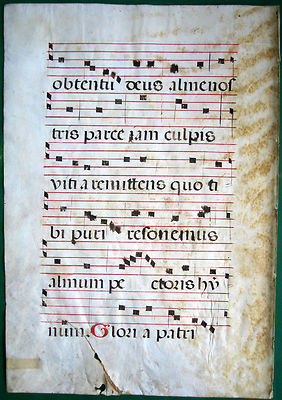 obtentu deus alme nos
tris parce iam culpis
vitia remittens quo ti
bi puri resonemus
almum pectoris hȳ
num. Glori a patri